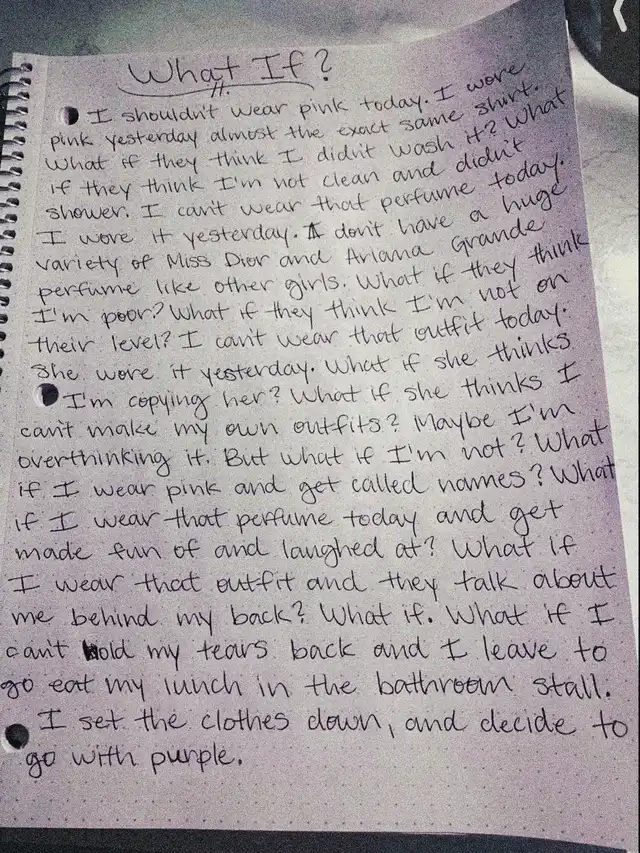 What If?
I shouldn't wear pink today. I wore
pink yesterday almost the exact same shirt.
What if they think I didn't wash it? What
if they think I'm not clean and didn't
shower. I can't wear that perfume today.
I wore it yesterday. I don't have a huge
variety of Miss Dior and Ariana Grande
perfume like other girls. What if they think
I'm poor? What if they think I'm not on
their level? I can't wear that outfit today.
She wore it yesterday. What if she thinks
I'm copying her? What if she thinks I
can't make my own outfits? Maybe I'm
overthinking it. But what if I'm not? What
if I wear pink and get called names? What
if I wear that perfume today and get
made fun of and laughed at? What if
I wear that outfit and they talk about
me behind my back? What if. What if I
can't hold my tears back and I leave to
go eat my lunch in the bathroom stall.
I set the clothes down, and decide to
go with purple.